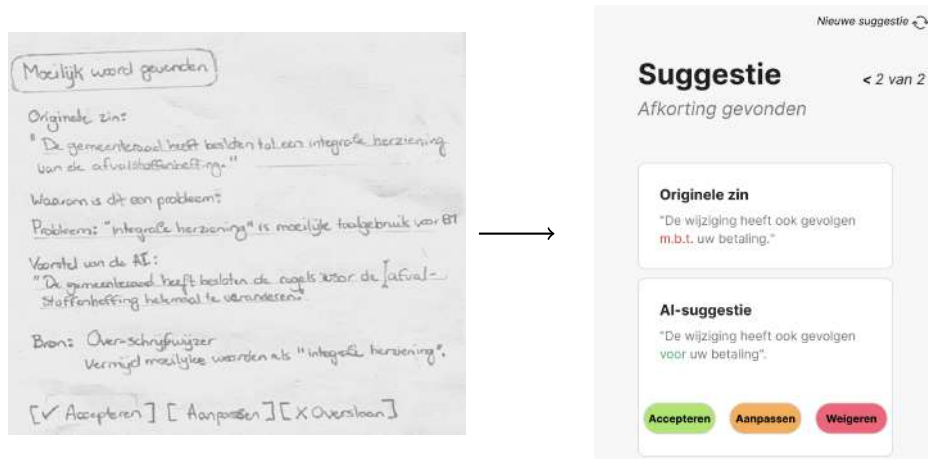 Moeilijk woord gevonden
Originele zin:
"De gemeenteraad heeft besloten tot een integrale herziening
van de afvalstoffenheffing."
Waarom is dit een probleem:
Probleem: "integrale herziening" is moeilijk taalgebruik voor B1
Voorstel van de AI:
"De gemeenteraad heeft besloten de regels voor de afval-
stoffenheffing helemaal te veranderen."
Bron: Over-schrijfwijzer
Vermijd moeilijke woorden als "integrale herziening".
[✓ Accepteren] [ Aanpassen ] [X Overslaan]
Nieuwe suggestie
Suggestie
< 2 van 2
Afkorting gevonden
Originele zin
"De wijziging heeft ook gevolgen
m.b.t. uw betaling."
AI-suggestie
"De wijziging heeft ook gevolgen
voor uw betaling".
Accepteren Aanpassen Weigeren